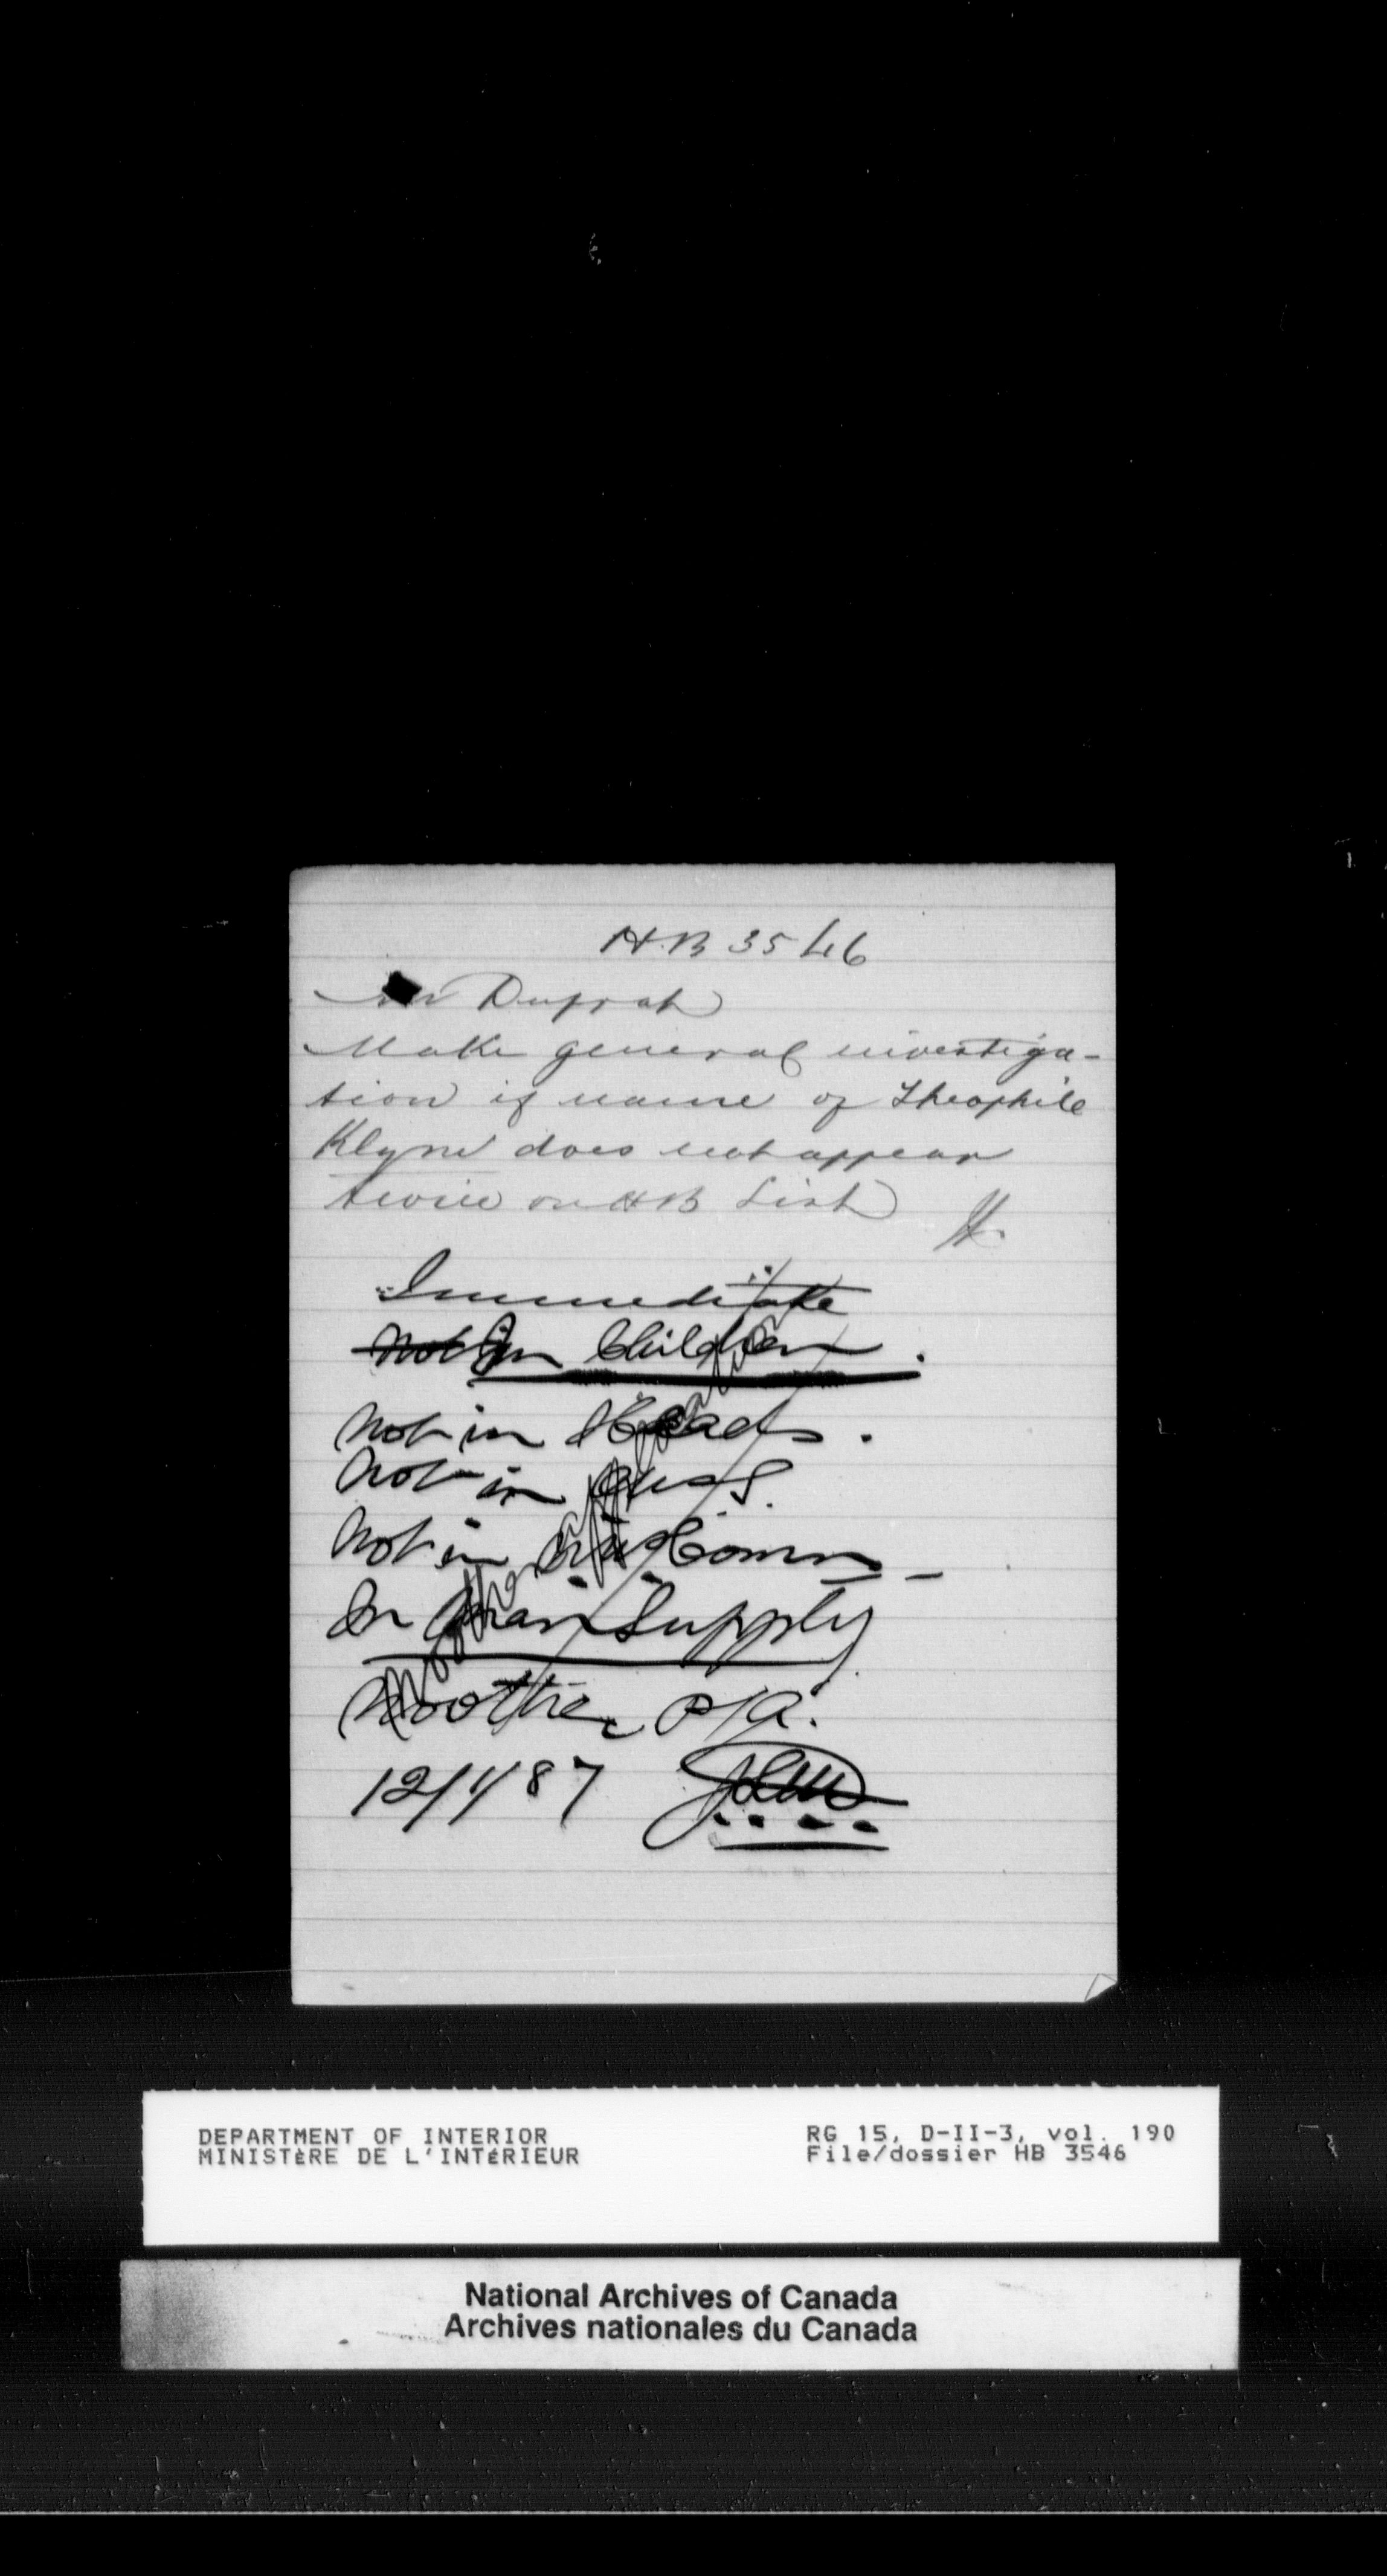 HB 3546
Mr Duprat
Make general investiga-
tion if name of Theophile
Klyne does not appear
twice on HB List
Immediate
Not In Children.
Not in Heads.
Not in
Not in Comm
In Supply
No other
12/1/87
DEPARTMENT OF INTERIOR
MINISTÈRE DE L'INTÉRIEUR
RG 15, D-II-3, vol. 190
File/dossier HB 3546
National Archives of Canada
Archives nationales du Canada